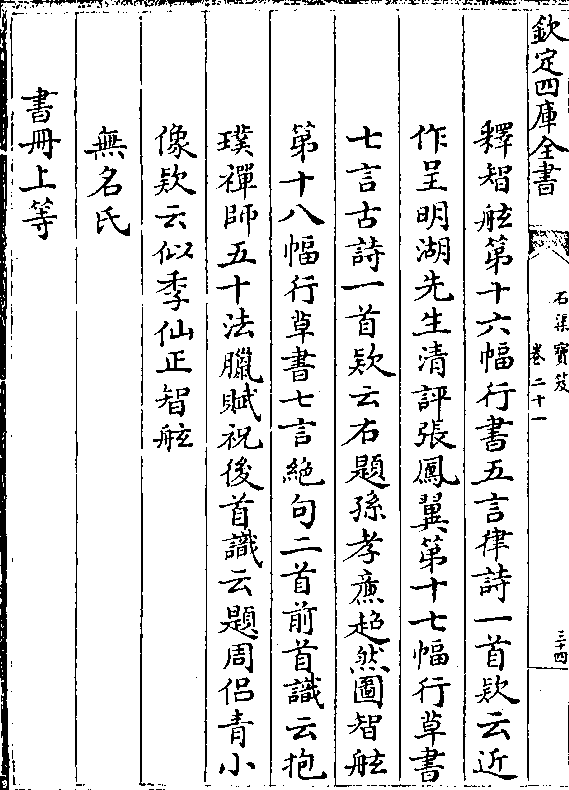 欽定四庫全書
石渠寶笈
卷二十一
三十四
釋智舷第十六幅行書五言律詩一首欵云近
作呈明湖先生清評張鳳翼第十七幅行草書
七言古詩一首欵云右題孫孝廉超然圖智舷
第十八幅行草書七言絶句二首前首識云抱
璞禪師五十法臘賦祝後首識云題周侶青小
像欵云似季仙正智舷
無名氏
書冊上等